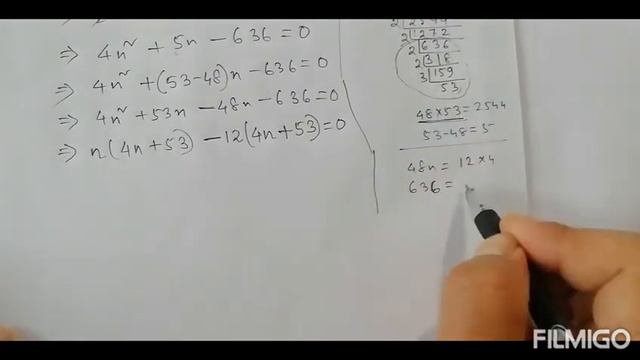 ⇒ 4n² + 5n - 636 = 0
⇒ 4n² + (53-48)n - 636 = 0
⇒ 4n² + 53n - 48n - 636 = 0
⇒ n(4n+53) - 12(4n+53) = 0
2 1272
2 636
2 318
3 159
53
48×53 = 2544
53-48 = 5
48n = 12×4
636 =
FILMIGO